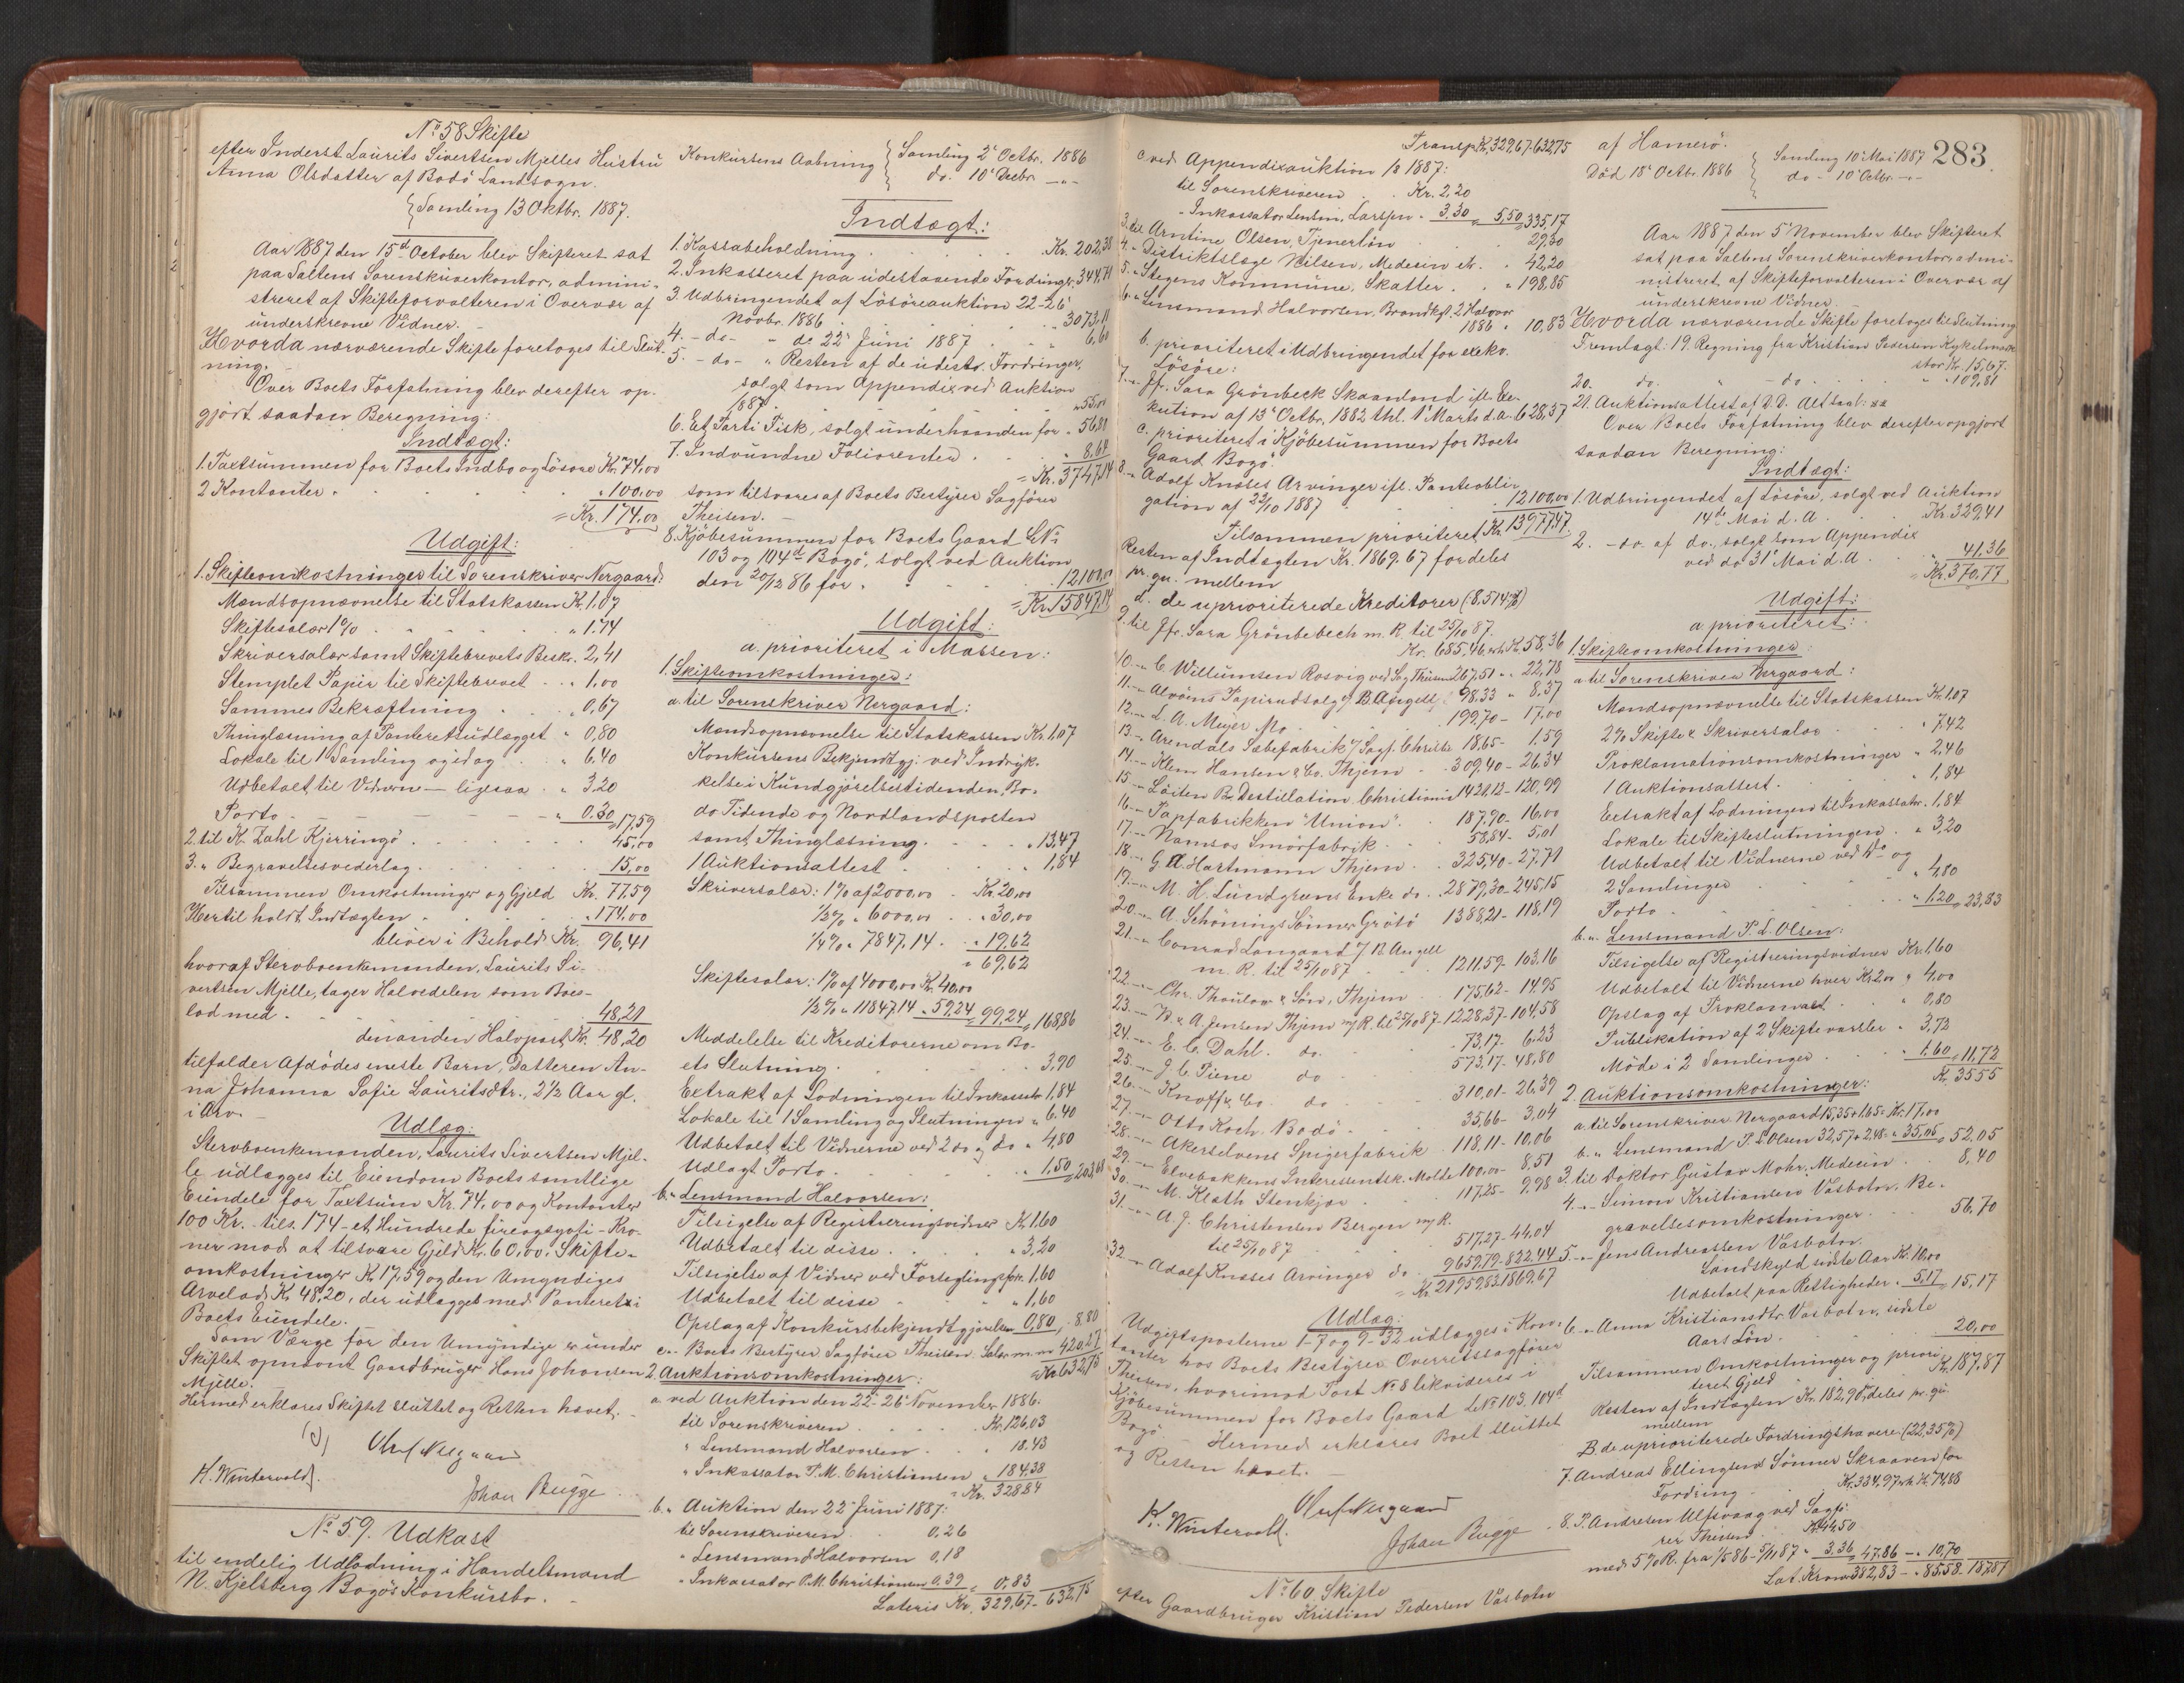 No 58 Skifte
efter Inderst Laurits Sivertsen Mjelles Hustru
Anna Olsdatter af Bodö Landsogn.
Samling 13 Oktbr. 1887.
Aar 1887 den 15de October blev Skifteret sat
paa Saltens Sorenskriverkontor, admini-
streret af Skifteforvalteren i Overvær af
underskrevne Vidner.
Hvorda nærværende Skifte foretoges til Slut-
ning.
Over Boets Forfatning blev derefter op-
gjort saadan Beregning:
Indtægt:
1. Taxtsummen for Boets Indbo og Lösöre Kr. 74,00
2 Kontanter . " 100,00
= Kr. 174,00
Udgift:
1. Skifteomkostninger til Sorenskriver Nergaard:
Mandsopnævnelse til Statskassen K. 1,07
Skiftesalær 1% " 1.74
Skriversalær samt Skiftebrevets Beskr. 2,41
Stemplet Papir til Skiftebrevet " 1,00
Sammes Bekræftning " 0,67
Thinglæsning af Panteretsudlægget " 0,80
Lokale til 1 Samling og idag " 6.40
Udbetalt til Vidnerne - ligesaa " 3.20
Porto " 0.30 17,59
2. til K. Zahl Kjerringö 45,00
3. " Begravelsesvederlag 15,00
Tilsammen Omkostninger og Gjeld Kr. 77,59
Hertil holdt Indtægten " 174,00
bliver i Behold Kr. 96,41
hvoraf Stervboenkemanden, Laurits Si-
vertsen Mjelle, tager Halvdelen som Boes-
lod med 48,21
den anden Halvpart Kr. 48,20
tilfalder Afdödes eneste Barn, Datteren An-
na Johanna Sofie Lauritsdtr., 2½ Aar gl.
i Arv.-
Udlæg:
Stervboenkemanden, Laurits Sivertsen Mjel-
le udlægges til Eiendom Boets samtlige
Eiendele for Taxtsum Kr. 74,00 og Kontanter
100 Kr. - tils. 174 - et Hundrede fireogsyvti - Kro-
ner mod at tilsvare Gjeld Kr. 60,00. Skifte-
omkostninger Kr. 17,59 og den Umyndiges
Arvelod Kr. 48,20, der udlægges med Panteret i
Boets Eiendele.
Som Værge for den Umyndige er under
Skiftet opnævnt Gaardbruger Hans Johansen
Mjelle.
Hermed erklæres Skiftet sluttet og Retten hævet.
Oluf Nergaard
K. Wintervold.
Johan Bugge
No 59. Udkast
til endelig Udlodning i Handelsmand
N. Kjelsberg Bogös Konkursbo.
Konkursens Aabning { Samling 2 Octbr. 1886
do. 10 Decbr. -"-
Indtægt:
1. Kassabeholdning Kr. 202,38
2. Inkasseret paa udestaaende Fordringer. 344,71
3. Udbringendet af Lösöreauktion 22-26
Novbr. 1886 " 3073,11
4. - do - " do 22 Juni 1887 " 6,60
5. - do - " Resten af de udestr. Fordringer,
solgt som Appendix ved Auktion
1887 " 55,00
6. Et Parti Fisk, solgt underhaanden for " 56,81
7. Indvundne Foliorenter " 8,64
= Kr. 3747,14
som tilsvares af Boets Bestyrer Sagförer
Theisen. -
8. Kjöbesummen for Boets Gaard LNo
103 og 104d Bogö, solgt ved Auktion
den 20/12 86 for 12100,00
= Kr. 15847,14
Udgift:
a. prioriteret i Massen:
1. Skifteomkostninger:
a. til Sorenskriver Nergaard:
Mandsopnævnelse til Statskassen Kr. 1,07
Konkursens Bekjendtgj. ved Indryk-
kelse i Kundgjörelsestidenden, Bo-
dö Tidende og Nordlandsposten
samt Thinglæsning " 13,47
1 Auktionsattest " 1,84
Skriversalær: 1% af 2000,00 Kr. 20,00
½% " 6000,00 " 30,00
¼% " 7847.14 " 19,62
" 69,62
Skiftesalær: 1% af 4000,00 Kr. 40,00
½% " 11847.14 " 59,24 = 99,24 = 168,86
Meddelelse til Kreditorerne om Bo-
ets Slutning 3,90
Extrakt af Lodningen til Inkassator 1,84
Lokale til 1 Samling og Slutningen " 6.40
Udbetalt til Vidnerne ved 2 do og do " 4,80
Udlagt Porto " 1,50
b. " Lensmand Halvorsen:
Tilsigelse af Registreringsvidner K. 1.60
Udbetalt til disse " 3,20
Tilsigelse af Vidner ved Forseglingsfor. 1,60
Udbetalt til disse " 1,60
Opslag af Konkursbekjendtgjörelsen 0,80 8.80
c. " Boets Bestyrer Sagförer Theisen Salær m.m. 420,27
Kr. 632,75
2. Auktionsomkostninger:
a ved Auktion den 22-26 November 1886:
til Sorenskriveren Kr. 126,03
" Lensmand Halvorsen " 18.43
" Inkassator P. M. Christiansen " 184,38
= Kr. 328,84
b. " Auktion den 22 Juni 1887:
til Sorenskriveren 0,26
" Lensmand Halvorsen 0,18
" Inkassator P. M. Christiansen 0,39 = 0,83
Lateris Kr. 329,67 - 632,75
Transp. Kr. 329,67 - 632,75
c. ved Appendixauktion 1887:
til Sorenskriveren Kr. 2,20
" Inkassator Lensm. Larssen " 3,30 = 5,50 335,17
3. til Arntine Olsen, Tjenerlön 29,30
4. " Distriktslæge Nilsen, Medecin etc. " 42,20
5. " Stegens Kommune, Skatter " 198,85
6. " Lensmand Halvorsen, Brandkgt. 2 Halvaar
1886 " 10,83
b. prioriteret i Udbringendet for exekv.
Lösöre:
7. " Jfr. Sara Grönbeck Skaanland ifl. Exe-
kution af 13 Octbr. 1882 thl. 1 Marts d.a. 628,37
c. prioriteret i Kjöbesummen for Boets
Gaard Bogö.
8. " Adolf Knöses Arvinger ifl. Panteobli-
gation af 22/10 1887 12100,00
Tilsammen prioriteret Kr. 13977,47
Resten af Indtægten Kr. 1869.67 fordeles
pr. qu. mellem
d. de uprioriterede Kreditorer (8,514%)
9. til Jfr. Sara Grönbebech m. R. til 25/10 87.
Kr. 685,46 erh. Kr. 58,36
10. " C. Willumsen Rosvig ved Sag. Theisen 267,51 " 22,78
11. " Alvöens Papirudsalg v/ B. Angell 98.33 " 8,37
12. " L. A. Meyer Mo 199,70 - 17,00
13. " Arendals Sæbefabrik v/ Sagf. Christie 18,65 - 1.59
14. " Klem Hansen & Co. Thjem 309,40 - 26,34
15. " Löiten Br. Destillation Christiania 1421,12 - 120,99
16. " Papfabrikken "Union" 187,90 - 16,00
17. " Namsos Smörfabrik 58,84 - 5,01
18. " G. A. Hartmann Thjem 325,40 - 27,71
19. " M. H. Lundgreens Enke do. 2879,30 - 245,15
20. " A. Schönings Sönner Grötö 1388,21 - 118,19
21. " Conrad Langaard v/ B. Angell
m. R. til 25/10 87 1211,59 - 103,16
22. " Chr. Thaulow & Sön, Thjem 175,62 - 14,95
23. " N. & A. Jensen Thjem m/R. til 25/10 87 - 1228,37 - 104,58
24. " E. C. Dahl. do. 73,17 - 6.23
25. " J. C. Piene do 573,17 - 48,80
26. " Knoff & Co. do 310,01 - 26,39
27. " Otto Koch, Bodö 35,66 - 3,04
28. " Akerselvens Spigerfabrik 118,11 - 10,06
29. " Elvebakkens Interessentsk. Molde 100,00 - 8,51
30. " M. Klath Stenkjær 117,25 - 9,98
31. " A. J. Christensen Bergen m/R.
til 25/10 87 517,27 - 44,04
32. " Adolf Knöses Arvinger do. 9659,79 - 822,44
= Kr. 21959,83 1869,67
Udlæg:
Udgiftsposterne 1-7 og 9-32 udlægges i Kon-
tanter hos Boets Bestyrer Overretssagförer
Theisen, hvorimod Post No 8 likvideres i
Kjöbesummen for Boets Gaard LNo 103, 104d
Bogö.
Hermed erklæres Boet sluttet
og Retten hævet. -
Oluf Nergaard
K. Wintervold.
Johan Bugge
No 60 Skifte
efter Gaardbruger Kristian Pedersen Vasbotn
af Hamerö.
283.
Död 18 Octbr. 1886 { Samling 10 Mai 1887
do - 10 Octbr. -"-
Aar 1887 den 5 November blev Skifteret
sat paa Saltens Sorenskriverkontor, admi-
nistreret af Skifteforvalteren i Overvær af
underskrevne Vidner.
Hvorda nærværende Skifte foretoges til Slutning
Fremlagt: 19. Regning fra Kristian Pedersen
stor Kr. 15,67.
20. do. " - do - " 109,81
21. Auktionsattest af D. D. Alt saal:
Over Boets Forfatning blev derefter opgjort
saadan Beregning:
Indtægt:
1. Udbringendet af Lösöre, solgt ved Auktion
14de Mai d. A. Kr. 329,41
2. - do. af do., solgt som Appendix
ved do 31 Mai d. A. 41.36
= Kr. 370,77
Udgift:
a. prioriteret:
1. Skifteomkostninger:
a. til Sorenskriver Nergaard:
Mandsopnævnelse til Statskassen Kr. 1.07
2% Skifte & Skriversalær " 7,42
Proklamationsomkostninger " 2,46
1 Auktionsattest. " 1,84
Extrakt af Lodningen til Inkassator. 1,84
Lokale til Skifteslutningen " 3,20
Udbetalt til Vidnerne ved do og
2 Samlinger " 4,80
Porto " 1.20 = 23,83
b. " Lensmand P. L. Olsen:
Tilsigelse af Registreringsvidner Kr. 1.60
Udbetalt til Vidnerne hver Kr. 2,00 " 4,00
Opslag af Proklamaet " 0,80
Publikation af 2 Skiftevarsler " 3,72
Möde i 2 Samlinger " 1.60 = 11,72
Kr. 35.55
2. Auktionsomkostninger:
a. til Sorenskriver Nergaard 15,35 + 1.65 = Kr. 17,00
b. " Lensmand P. L. Olsen 32,57 + 2.48 = " 35,05 = 52,05
3. til Doktor Gustav Mohr, Medecin 8,40
4. " Simon Kristiansen Vasbotn, Be-
gravelsesomkostninger 56,70
5. " Jens Andreassen Vasbotn.
Landskyld sidste Aar Kr. 10,00
Udbetalt paa Rettigheder " 5,17 = 15,17
6. " Anna Kristiansdtr. Vasbotn, sidste
Aars Lön 20,00
Tilsammen Omkostninger og priori-
teret Gjeld Kr. 187,87
Resten af Indtægten Kr. 182,90, deles pr. qu.
mellem
B. de uprioriterede Fordringshavere: (22,35%)
7. Andreas Ellingsens Sönner Skraaven for
Fordring Kr. 334,97 erh. Kr. 74,88
8. P. Andresen Ulfsvaag ved Sagfö-
rer Theisen Kr. 44,50
med 5% R. fra 1/5 86 - 5/11 87 " 3.36 = 47.86 - " 10,70
Lat. Kroner 382,83 - " 85.58 187,87